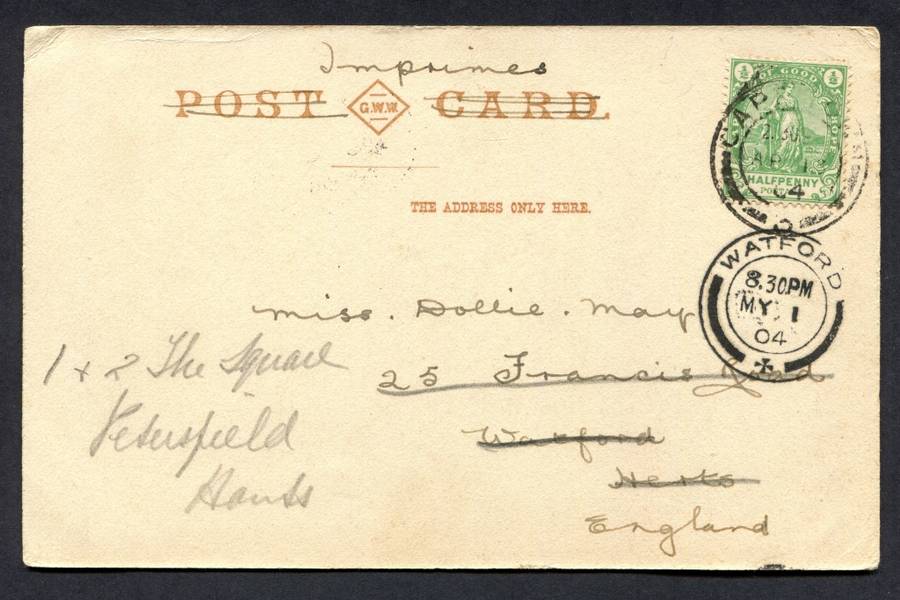 Imprimes
POST G.W.W. CARD.
THE ADDRESS ONLY HERE.
OF GOOD HOPE
HALFPENNY
04
WATFORD
8.30PM
MY 1
04
Miss. Dollie. May
25 Francis Road
Watford
Herts
England
1 + 2 The Square
Petersfield
Hants